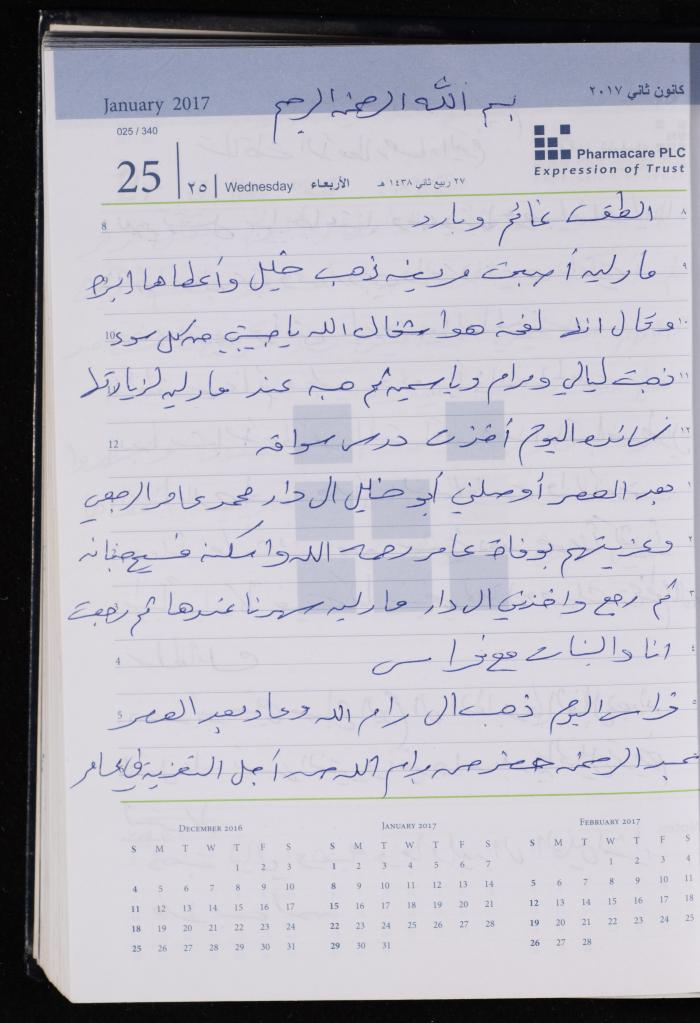 بسم الله الرحمن الرحيم
January 2017
كانون ثاني ٢٠١٧
025 / 340
25 | ٢٥ | Wednesday الأربعاء ٢٧ ربيع ثاني ١٤٣٨ هـ
Pharmacare PLC
Expression of Trust
8 الطقس غائم وبارد ٨
مارليه أصبحت مريضه ذهب خليل وأعطاها ابره ٩
10 وقال انها لفحة هوا شفاك الله يا حبيبتي من كل سوء ١٠
ذهبت ليالي ومرام وياسمين ثم هبه عند مارليه لزيارتها ١١
12 اليوم أخذت درس سواقه ١٢
بعد العصر أوصلني أبو خليل ال دار محمد عامر الرجعي ١
وعزيتهم بوفاة عامر رحمه الله واسكنه فسيح جنانه ٢
ثم رجع واخذني ال دار مارليه سهرنا عندها ثم رجعت ٣
4 انا والبنات مع فراس ٤
5 فراس اليوم ذهب ال رام الله وعاد بعد العصر ٥
عبد الرحمن حضر من رام الله من أجل التعزية في عامر
DECEMBER 2016
S M T W T F S
1 2 3
4 5 6 7 8 9 10
11 12 13 14 15 16 17
18 19 20 21 22 23 24
25 26 27 28 29 30 31
JANUARY 2017
S M T W T F S
1 2 3 4 5 6 7
8 9 10 11 12 13 14
15 16 17 18 19 20 21
22 23 24 25 26 27 28
29 30 31
FEBRUARY 2017
S M T W T F S
1 2 3 4
5 6 7 8 9 10 11
12 13 14 15 16 17 18
19 20 21 22 23 24 25
26 27 28